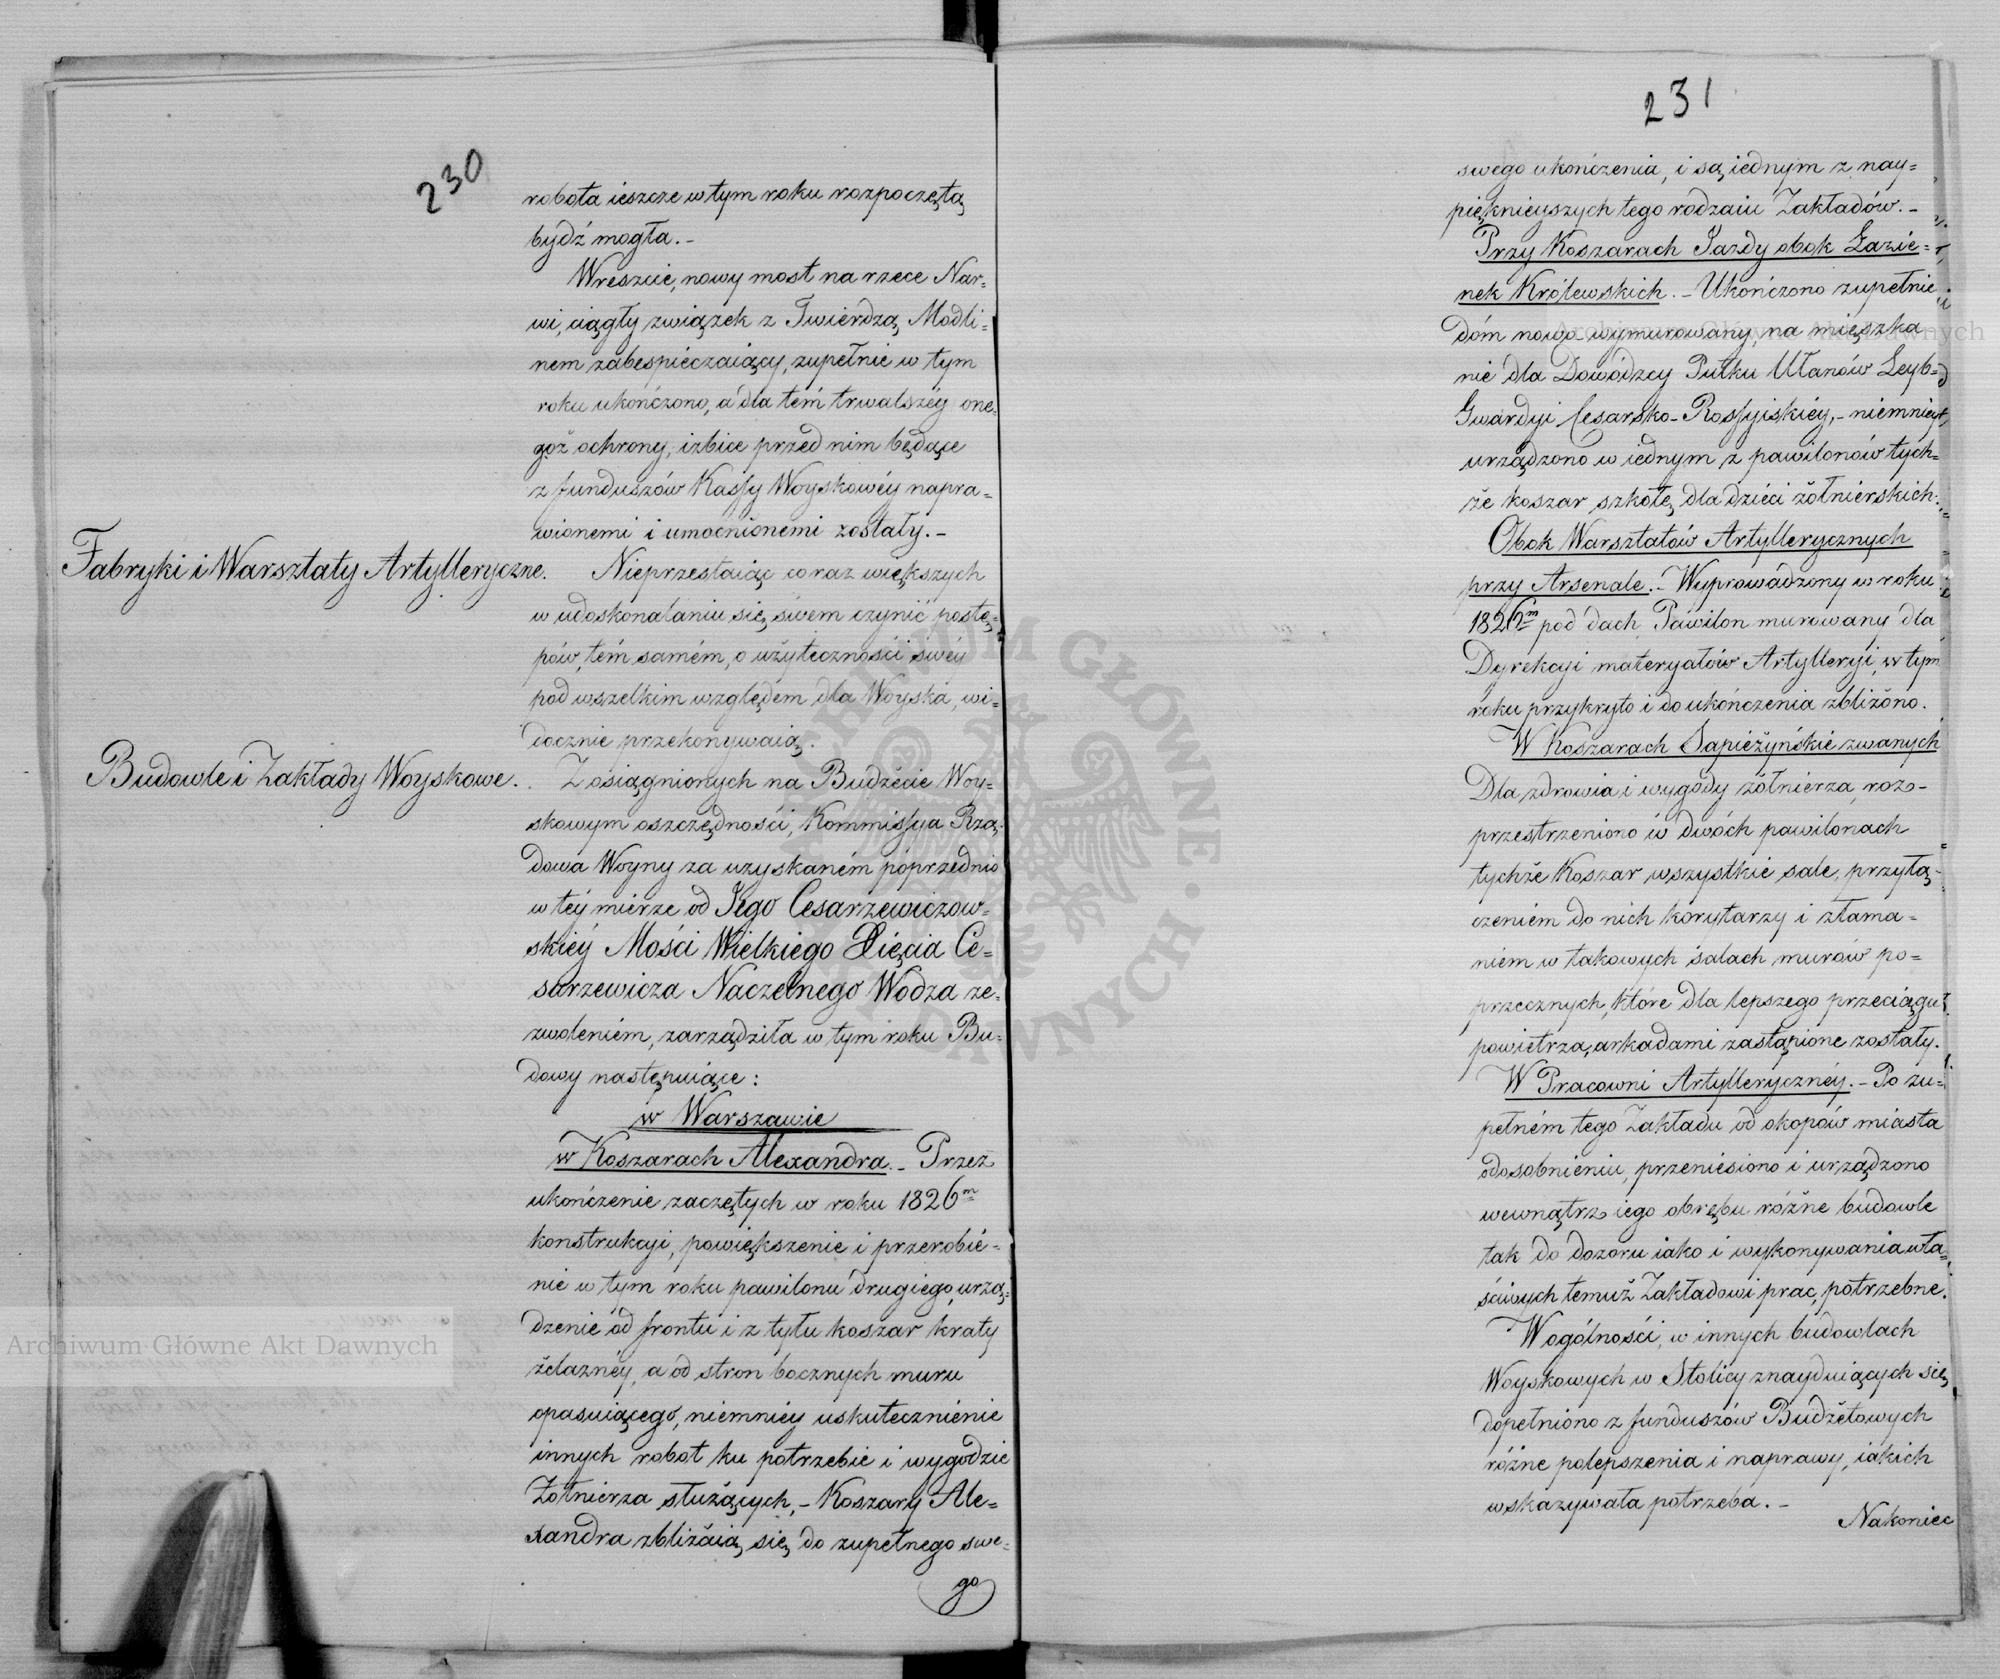 230
robota ieszcze w tym roku rozpoczętą
bydź mogła. –
Wreszcie, nowy most na rzece Nar=
wi, ciągły związek z Twierdzą Modli=
nem zabespieczaiący, zupełnie w tym
roku ukończono, a dla tém trwalszéy one=
goż ochrony, izbice przed nim będące
z funduszów Kassy Woyskowéy napra=
wionemi i umocnionemi zostały. –
Fabryki i Warsztaty Artylleryczne.
Nieprzestaiąc coraz większych
w udoskonalaniu się swem czynić postę=
pów, tém samém, o użyteczności swéy
pod wszelkim względem dla Woyska, wi=
docznie przekonywaią.
Budowle i Zakłady Woyskowe.
Z osiągnionych na Budżecie Woy=
skowym oszczędności, Kommissya Rzą=
dowa Woyny za uzyskaném poprzednio
w téy mierze od Jego Cesarzewiczow=
skiéy Mości Wielkiego Xięcia Ce=
sarzewicza Naczelnego Wodza ze=
zwoleniém, zarządziła w tym roku Bu=
dowy następuiące:
w Warszawie
w Koszarach Alexandra. – Przez
ukończenie zaczętych w roku 1826m
konstrukcyi, powiększenie i przerobie=
nie w tym roku pawilonu drugiego, urzą=
dzenie od frontu i z tyłu koszar kraty
żelaznéy, a od stron bocznych muru
opasuiącego, niemniéy uskutecznienie
innych robot ku potrzebie i wygodzie
Żołnierza służących, – Koszary Ale=
xandra zbliżaią się do zupełnego swe=
go
231
swego ukończenia, i są iednym z nay=
pięknieyszych tego rodzaiu Zakładów. –
Przy Koszarach Jazdy obok Łazie=
nek Królewskich. – Ukończono zupełnie
dóm nowo wymurowany, na mięszka
nie dla Dowódzcy Pułku Ułanów Leyb=
Gwardyi Cesarsko-Rossyiskiéy, – niemniéy
urządzono w iednym z pawilonów tych=
że koszar szkołę dla dzieci żołnierskich.
Obok Warsztatów Artyllerycznych
przy Arsenale. – Wyprowadzony w roku
1826m pod dach Pawilon murowany dla
Dyrekcyi materyałów Artylleryi, w tym
roku przykryto i do ukończenia zbliżono.
W Koszarach Sapieżyńskie zwanych
Dla zdrowia i wygody żółnierza roz=
przestrzeniono w dwóch pawilonach
tychże Koszar wszystkie sale, przyłą=
czeniem do nich korytarzy i złama=
niem w takowych salach murów po=
przecznych, które dla lepszego przeciągu
powietrza, arkadami zastąpione zostały.
W Pracowni Artylleryczney. – Po zu=
pełném tego Zakładu od okopów miasta
odosobnieniu, przeniesiono i urządzono
wewnątrz iego obrębu różne budowle
tak do dozoru iako i wykonywania wła=
ściwych temuż Zakładowi prac, potrzebne.
Wogólności, w innych budowlach
Woyskowych w Stolicy znayduiących się,
dopełniono z funduszów Budżetowych
różne polepszenia i naprawy, iakich
wskazywała potrzeba. –
Nakoniec
Archiwum Główne Akt Dawnych
Archiwum Główne Akt Dawnych
ARCHIWUM GŁÓWNE AKT DAWNYCH